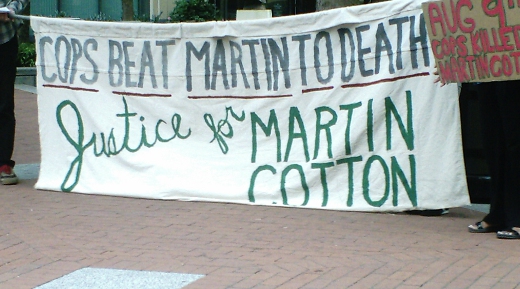 COPS BEAT MARTIN TO DEATH
Justice for MARTIN
COTTON
AUG 9TH
COPS KILLE
MARTIN COT